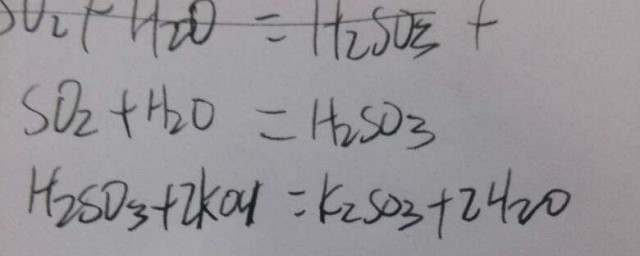 SO2+H2O = H2SO3 +
SO2+H2O = H2SO3
H2SO3+2KOH = K2SO3+2H2O